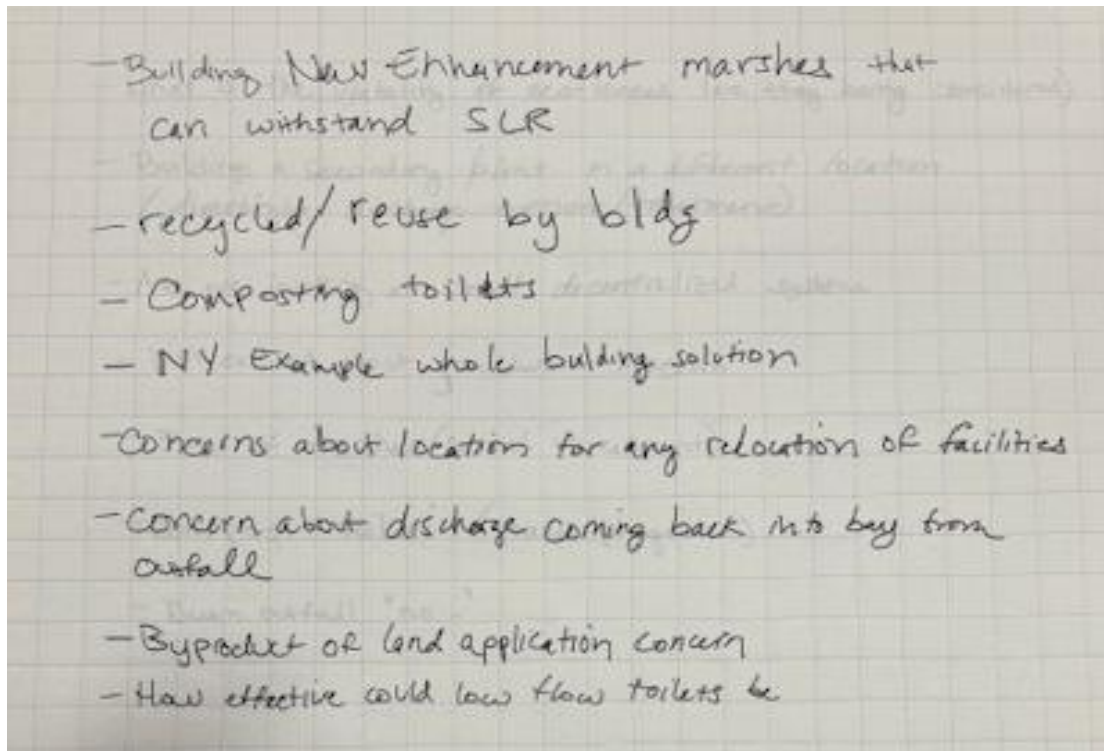 - Building New Enhancement marshes that
can withstand SLR
- recycled/reuse by bldg
- Composting toilets
- NY Example whole bulding solution
- Concerns about location for any relocation of facilities
- Concern about discharge coming back into bay from
outfall
- Byproduct of land application concern
- How effective could low flow toilets be